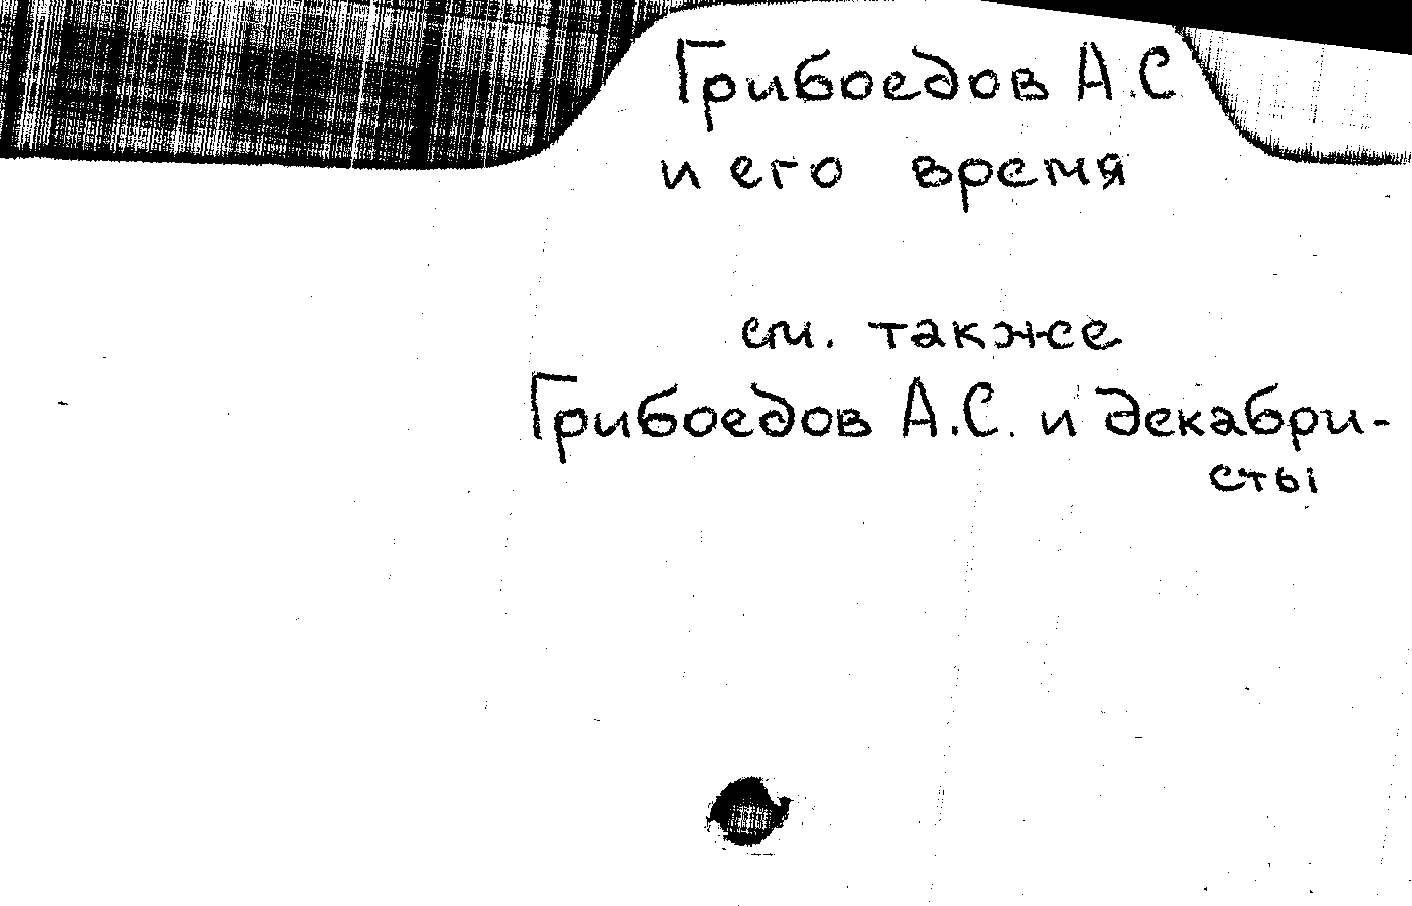 Грибоедов А.С
и его время
см. также
Грибоедов А.С. и декабри-
сты